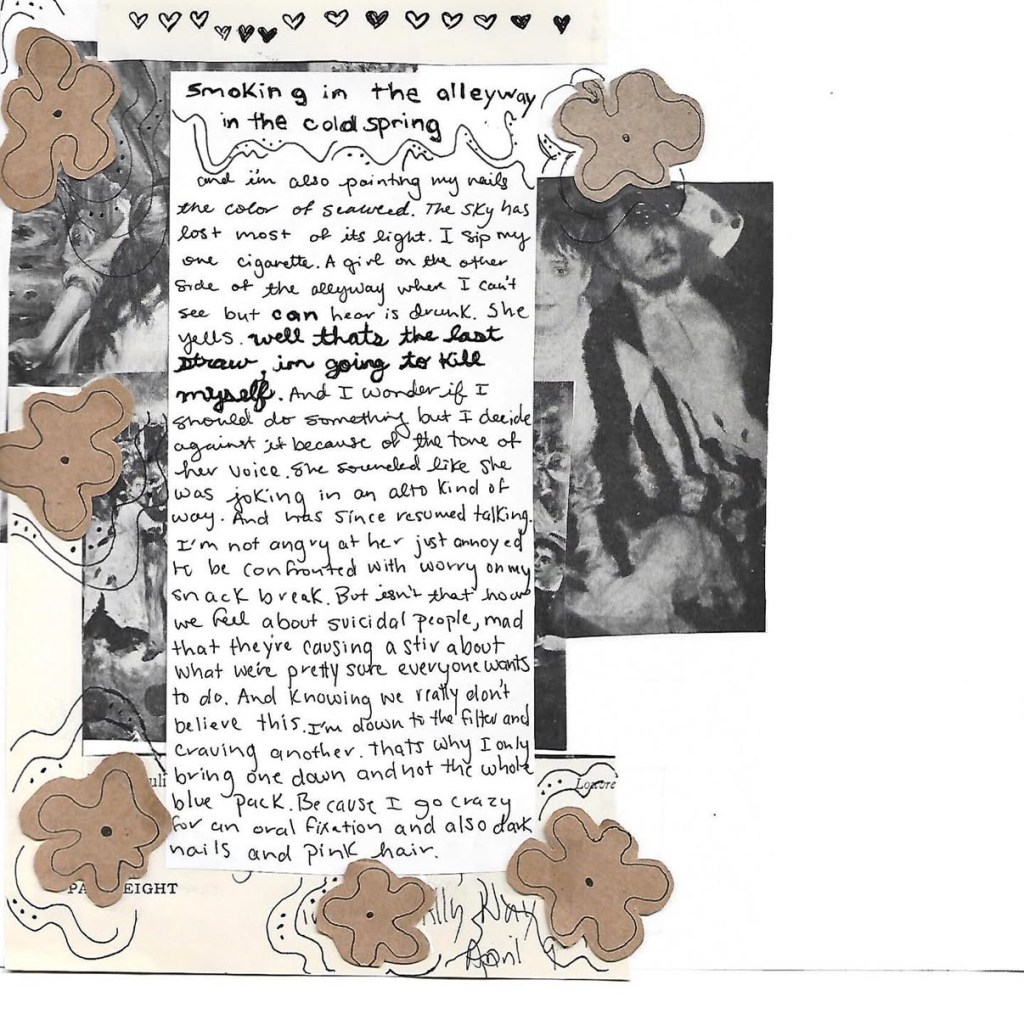 smoking in the alleyway
in the cold spring
and i'm also painting my nails
the color of seaweed. The sky has
lost most of its light. I sip my
one cigarette. A girl on the other
side of the alleyway where I can't
see but can hear is drunk. She
yells. well thats the last
straw, im going to kill
myself. And I wonder if I
should do something but I decide
against it because of the tone of
her voice. She sounded like she
was joking in an alto kind of
way. And has since resumed talking.
I'm not angry at her just annoyed
to be confronted with worry on my
snack break. But isn't that how
we feel about suicidal people, mad
that they're causing a stir about
what we're pretty sure everyone wants
to do. And knowing we really don't
believe this. I'm down to the filter and
craving another. thats why I only
bring one down and not the whole
blue pack. Because I go crazy
for an oral fixation and also dark
nails and pink hair.
Louvre
EIGHT
April 9